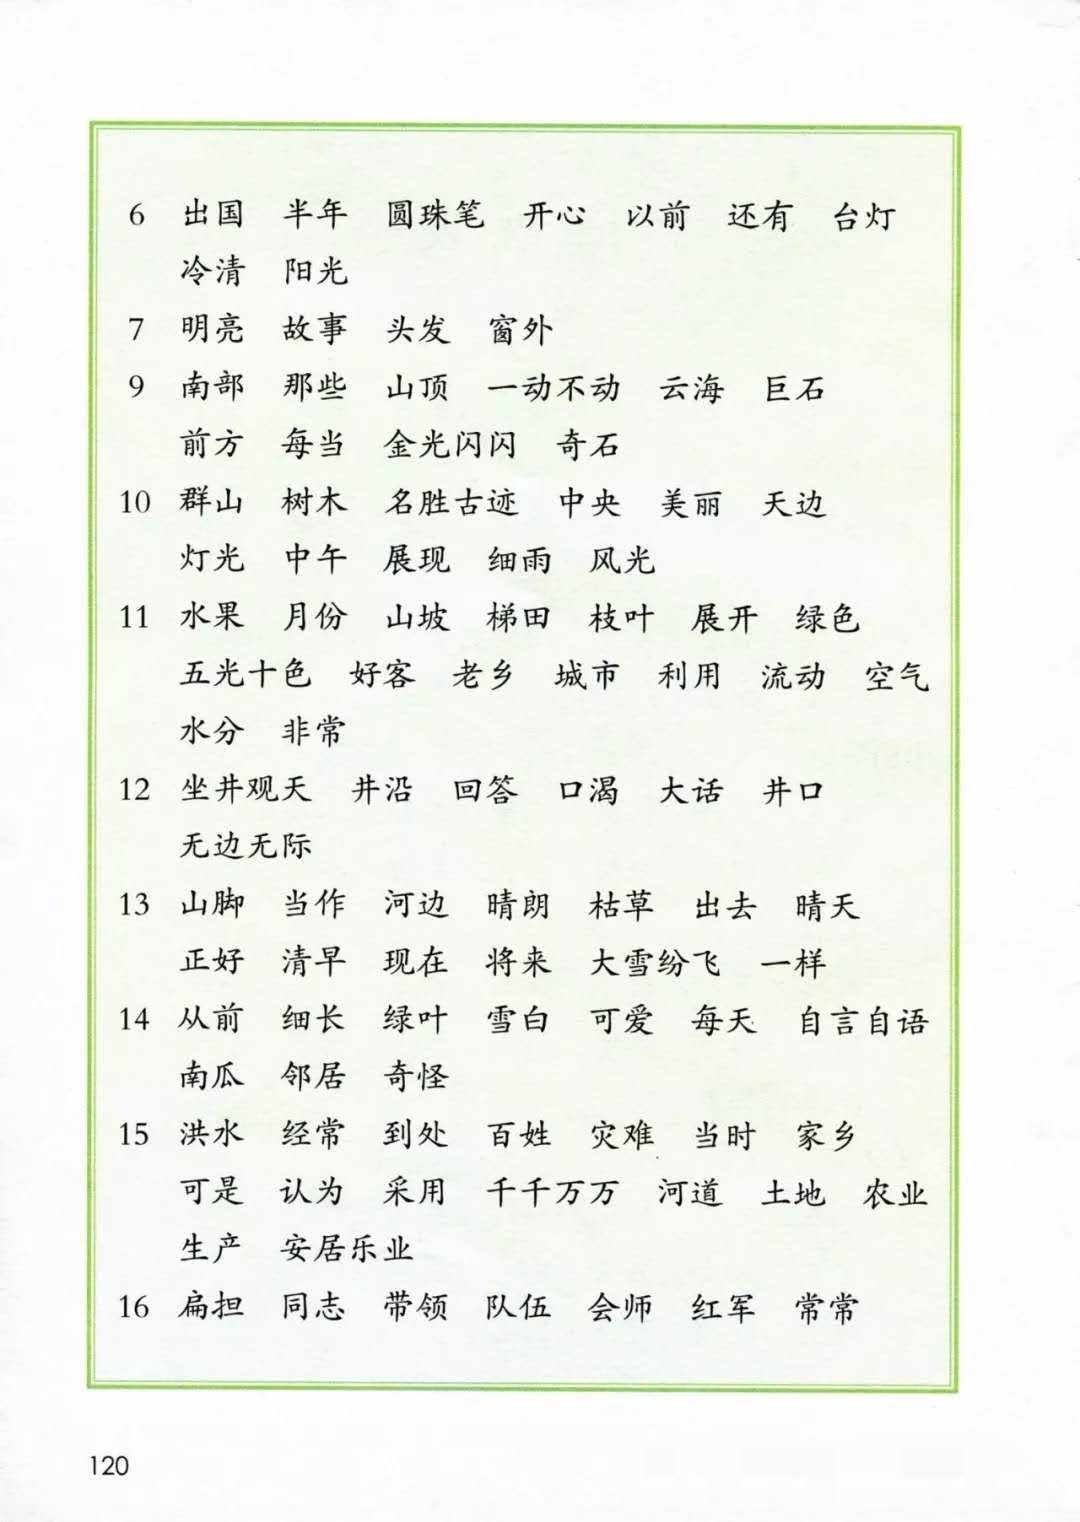 6 出国 半年 圆珠笔 开心 以前 还有 台灯
冷清 阳光
7 明亮 故事 头发 窗外
9 南部 那些 山顶 一动不动 云海 巨石
前方 每当 金光闪闪 奇石
10 群山 树木 名胜古迹 中央 美丽 天边
灯光 中午 展现 细雨 风光
11 水果 月份 山坡 梯田 枝叶 展开 绿色
五光十色 好客 老乡 城市 利用 流动 空气
水分 非常
12 坐井观天 井沿 回答 口渴 大话 井口
无边无际
13 山脚 当作 河边 晴朗 枯草 出去 晴天
正好 清早 现在 将来 大雪纷飞 一样
14 从前 细长 绿叶 雪白 可爱 每天 自言自语
南瓜 邻居 奇怪
15 洪水 经常 到处 百姓 灾难 当时 家乡
可是 认为 采用 千千万万 河道 土地 农业
生产 安居乐业
16 扁担 同志 带领 队伍 会师 红军 常常
120